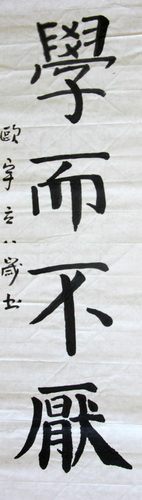 學而不厭
歐宇立八歲书